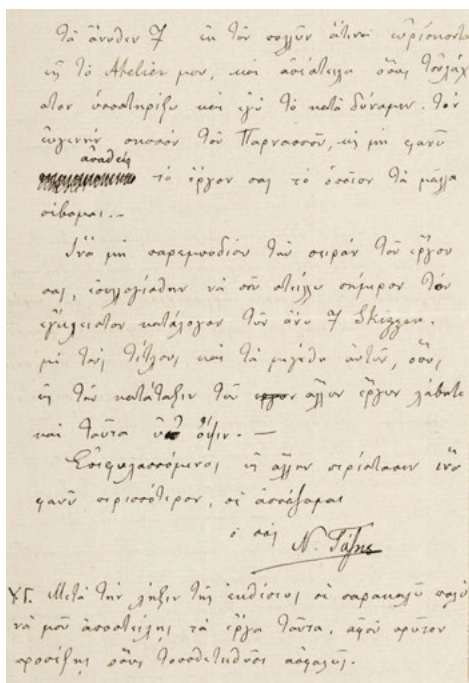 τὰ ἄνωθεν 7 ἐκ τῶν πολλῶν ἅτινα εὑρίσκονται
εἰς τὸ Atelier μου, καὶ ἀπέστειλα ὅπως τοὐλάχι
στον ὑποστηρίξω καὶ ἐγὼ τὸ κατὰ δύναμιν. τὸν
εὐγενῆ σκοπὸν τοῦ Παρνασσοῦ, κ μὴ φανῶ
ἀπαθὴς
τὸ ἔργον σας τὸ ὁποῖον τὰ μάλα
σέβομαι.–
Ἵνα μὴ παρεμποδίσω τὴν σειρὰν τῶν ἔργων
σας, ἐσυλλογίσθην νὰ σοῦ στείλω σήμερον τὸν
ἐγκλειστον κατάλογον τῶν ἄνω 7 Skizzen.
μὲ τοὺς τίτλους, καὶ τὰ μεγέθη αὐτῶν, ὅπως,
εἰς τὴν κατάταξιν τῶν ἄλλων ἔργων λάβητε
καὶ ταῦτα ὑπ' ὄψιν. —
Ἐπιφυλασσόμενος εἰς ἄλλην περίστασιν ἵνα
φανῶ περισσότερον, σὲ ἀσπάζομαι
ὁ σὸς
Ν. Γύζης
Υ.Γ. Μετὰ τὴν λῆξιν τῆς ἐκθέσεως σὲ παρακαλῶ πολὺ
νὰ μοῦ ἀποστείλῃς τὰ ἔργα ταῦτα, ἀφοῦ πρῶτον
προσέξῃς ὅπως τοποθετηθῶσι ἀσφαλῶς.